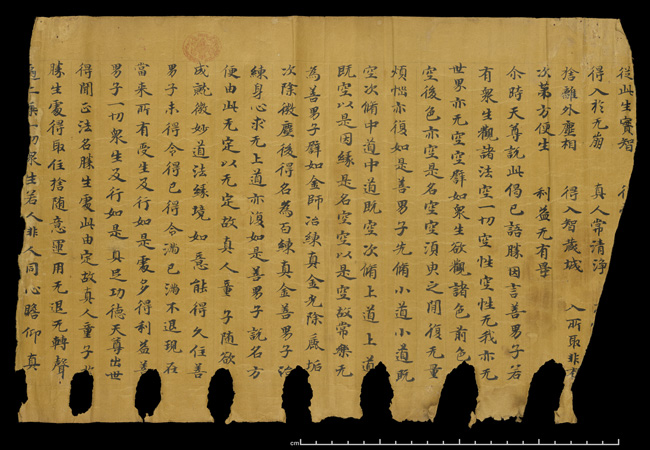 從此生實智
得入於无崩 真人常清淨
捨離外塵相 得入智慧城 入所取非
次第方便生 利益无有導
尒時天尊說此偈已語勝因言善男子若
有衆生觀諸法空一切空性空性无我亦无
世界亦无空空譬如衆生欲觀諸色前色
空後色亦空是名空空須臾之間復无量
煩惱亦復如是善男子先脩小道小道既
空次脩中道中道既空次脩上道上道
既空以是因緣是名空空以是空故常樂无
為善男子譬如金師冶練真金先除麁垢
次除微塵後得名為百練真金善男子冶
練身心求无上道亦復如是善男子說名方
便由此无定以无定故真人童子隨欲
成就微妙道法緣境如意能得久住善
男子未得令得已得令滿已滿不退現在
當來所有受生及行如是處多得利益善
男子一切衆生及行如是真足功德天尊出世
得聞正法名勝生處此由定故真人童子
勝生處得取住捨隨意運用无退无轉聲
二乘一切衆生若人非人同心瞻仰真